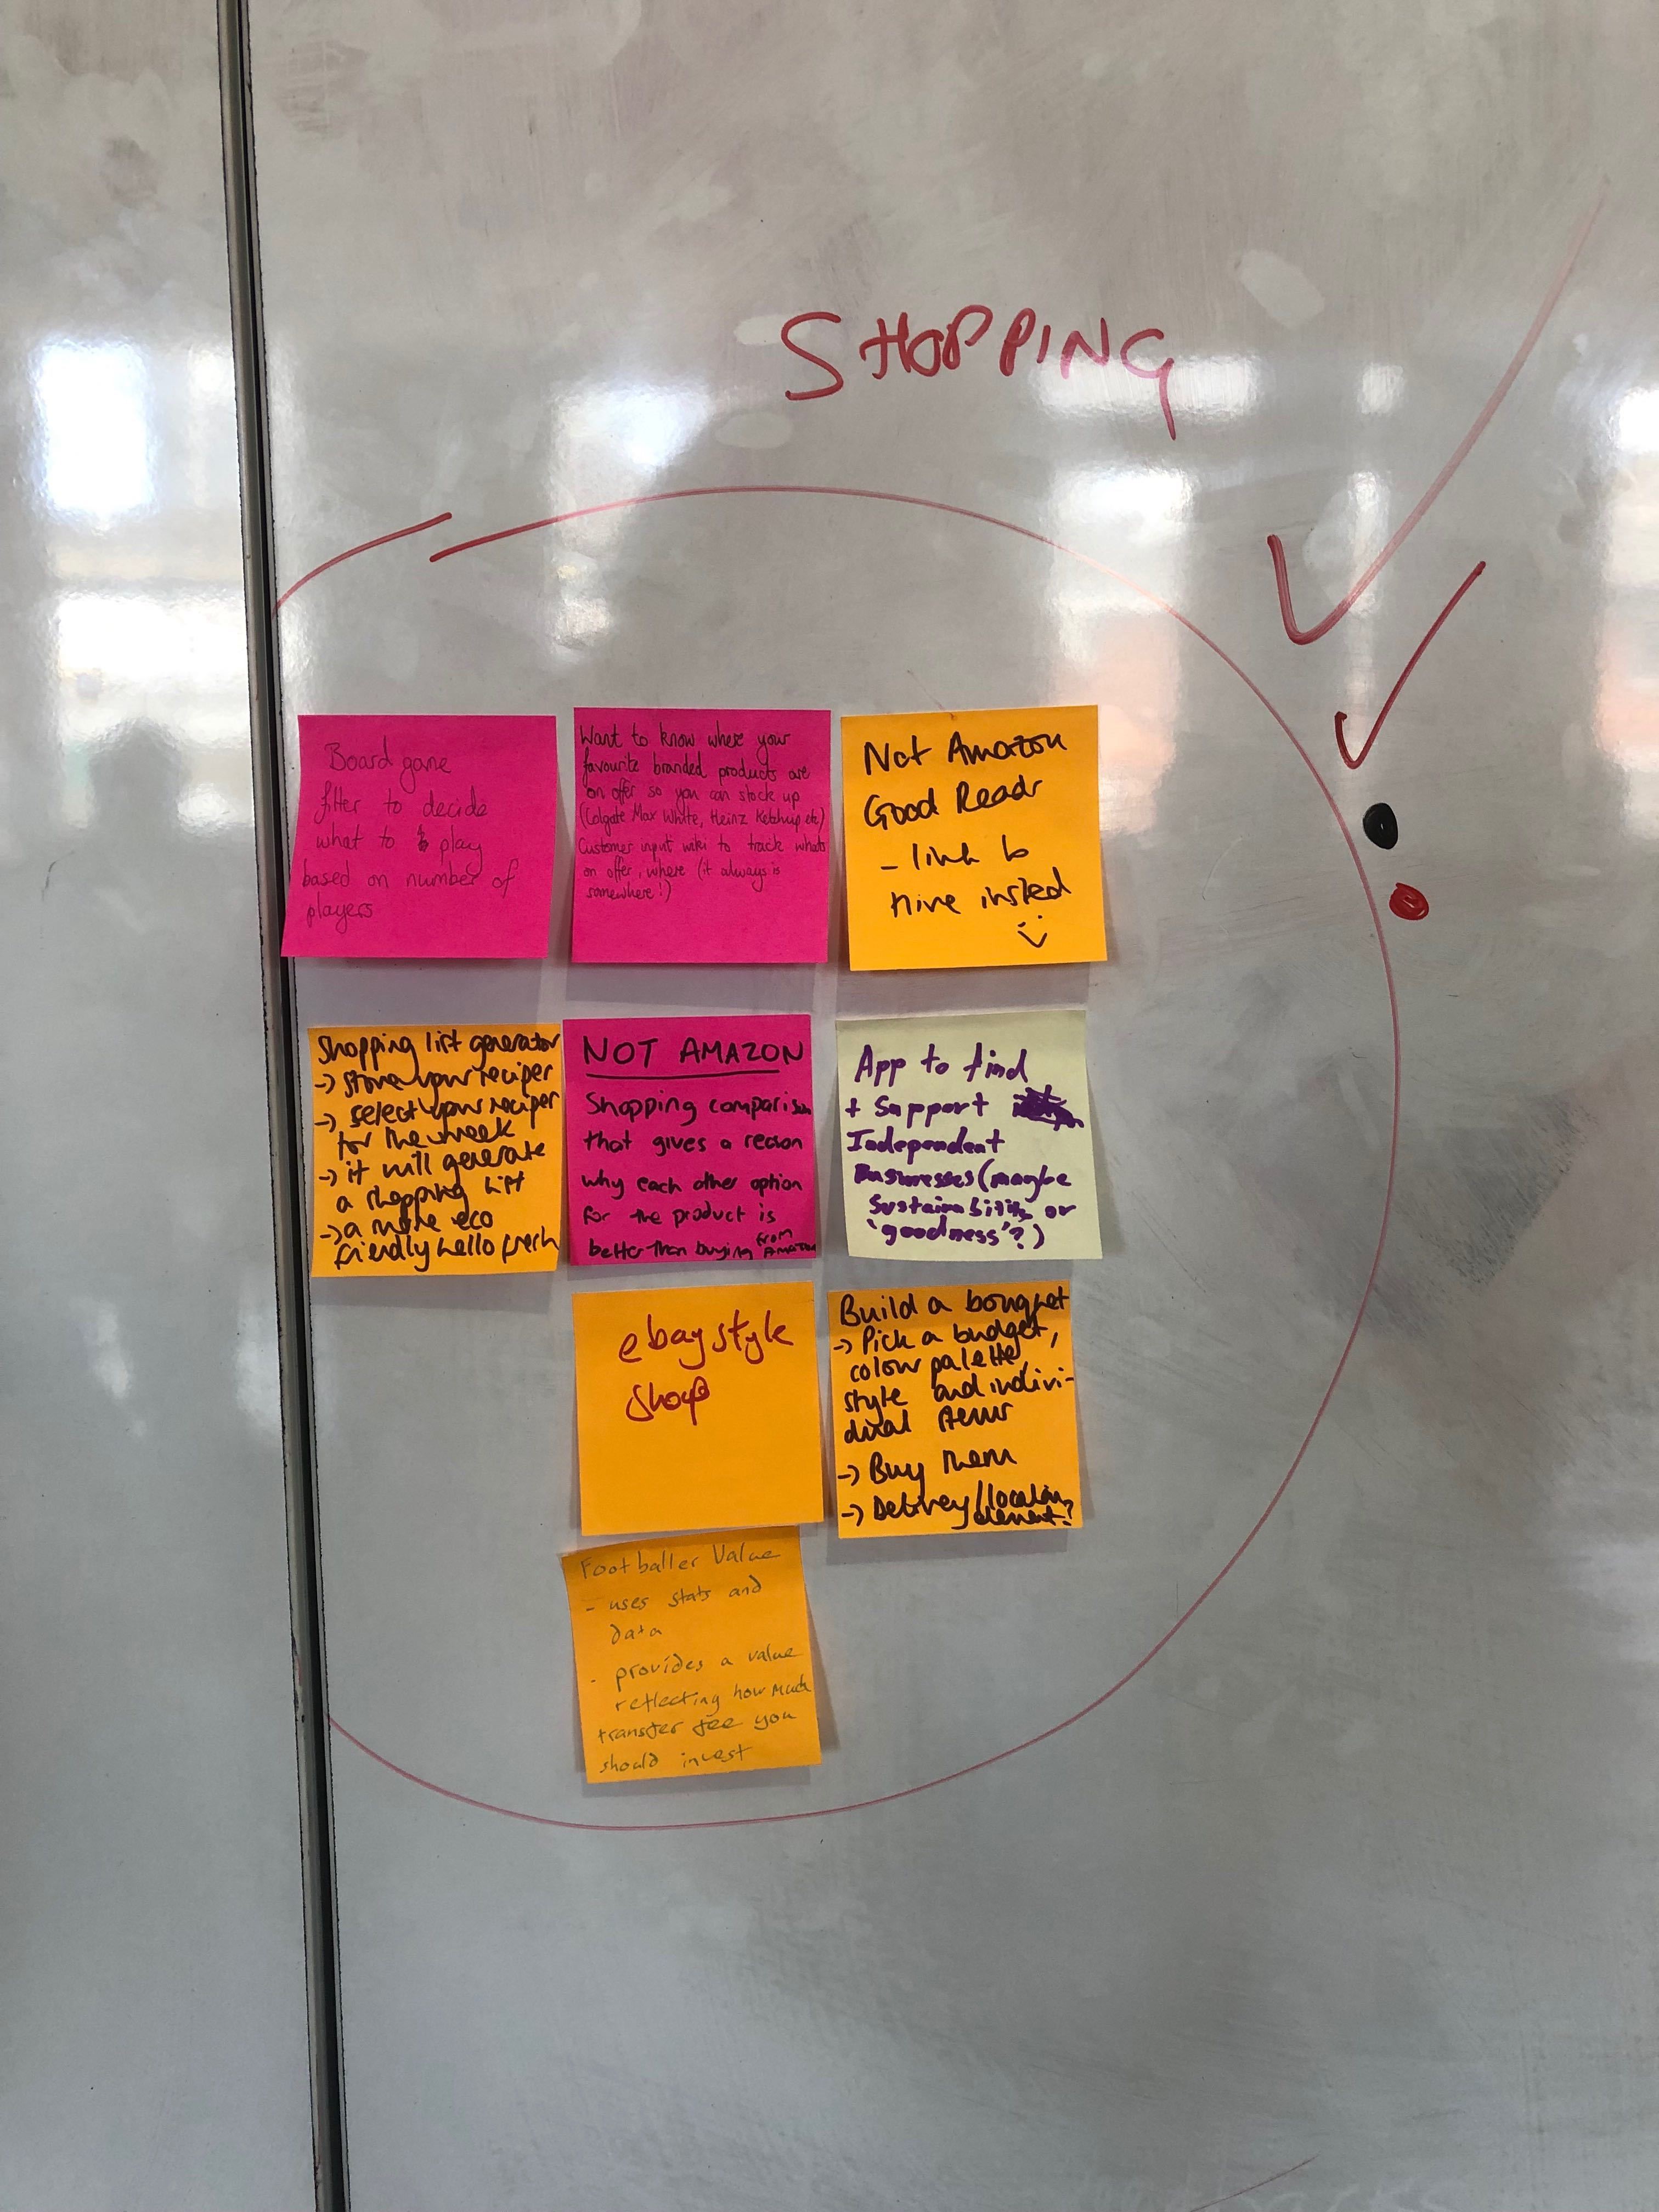 SHOPPING
Board game
filter to decide
what to play
based on number of
players
Want to know where your
favourite branded products are
on offer so you can stock up
(Colgate Max White, Heinz Ketchup etc)
Customer input wiki to track whats
on offer, where (it always is
somewhere!)
Not Amazon
Good Reads
- link to
hive insted
Shopping list generator
-> store your recipes
-> select your recipes
for the week
-> it will generate
a shopping list
-> a more eco
friendly hello fresh
NOT AMAZON
Shopping comparison
that gives a reason
why each other option
for the product is
better than buying from AMAZON
App to find
+ Support
Independent
Businesses (maybe
Sustainability or
'goodness'?)
ebay style
shop
Build a bouquet
-> Pick a budget,
colour palette,
style and indivi-
dual items
-> Buy them
-> Delivery/location
element?
Footballer Value
- uses stats and
data
- provides a value
reflecting how much
transfer fee you
should invest